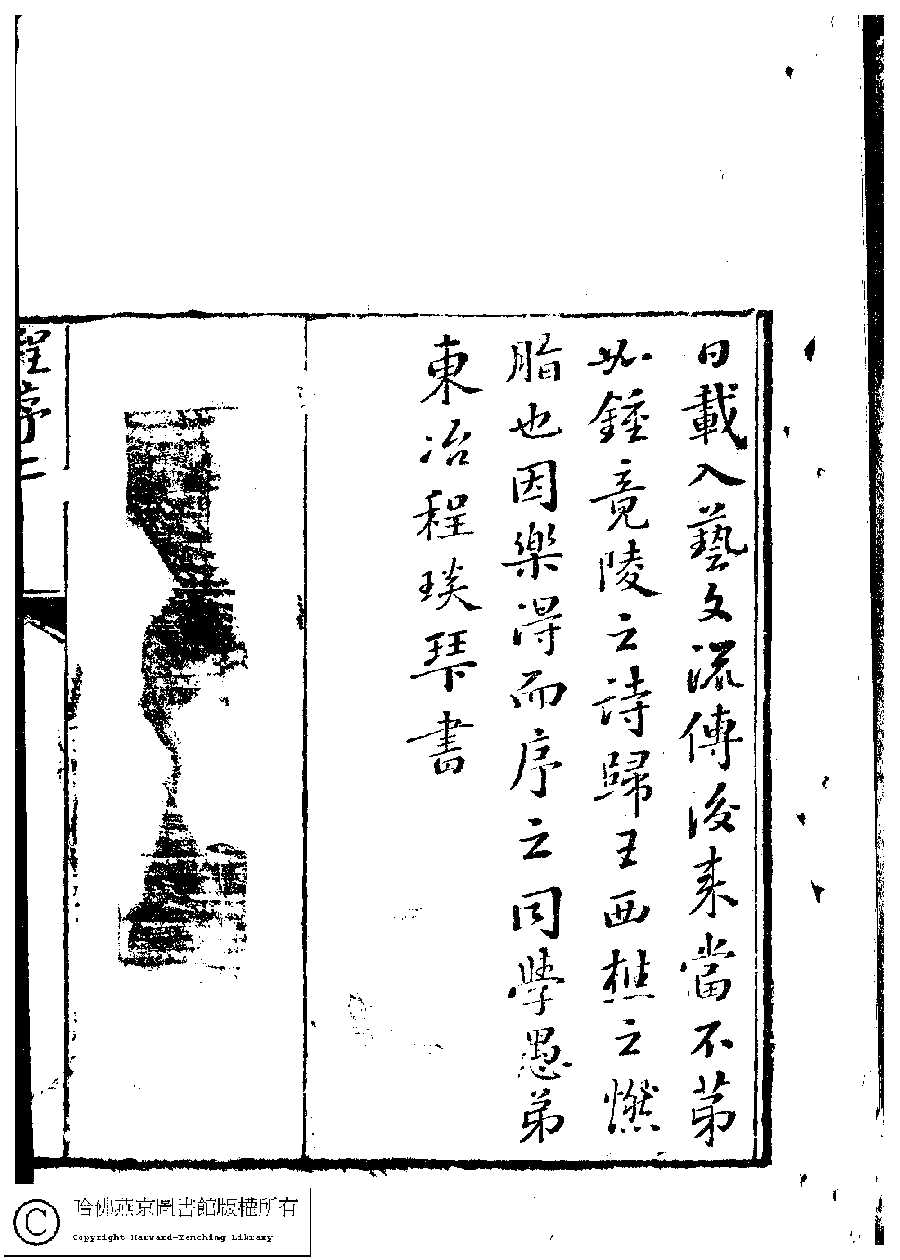 日載入藝文流傳後来當不苐
如鍾竟陵之詩歸王西樵之燃
脂也因樂得而序之同學愚弟
東冶程琰琴書
程序二
哈佛燕京圖書館版權所有
Copyright Harvard-Yenching Library